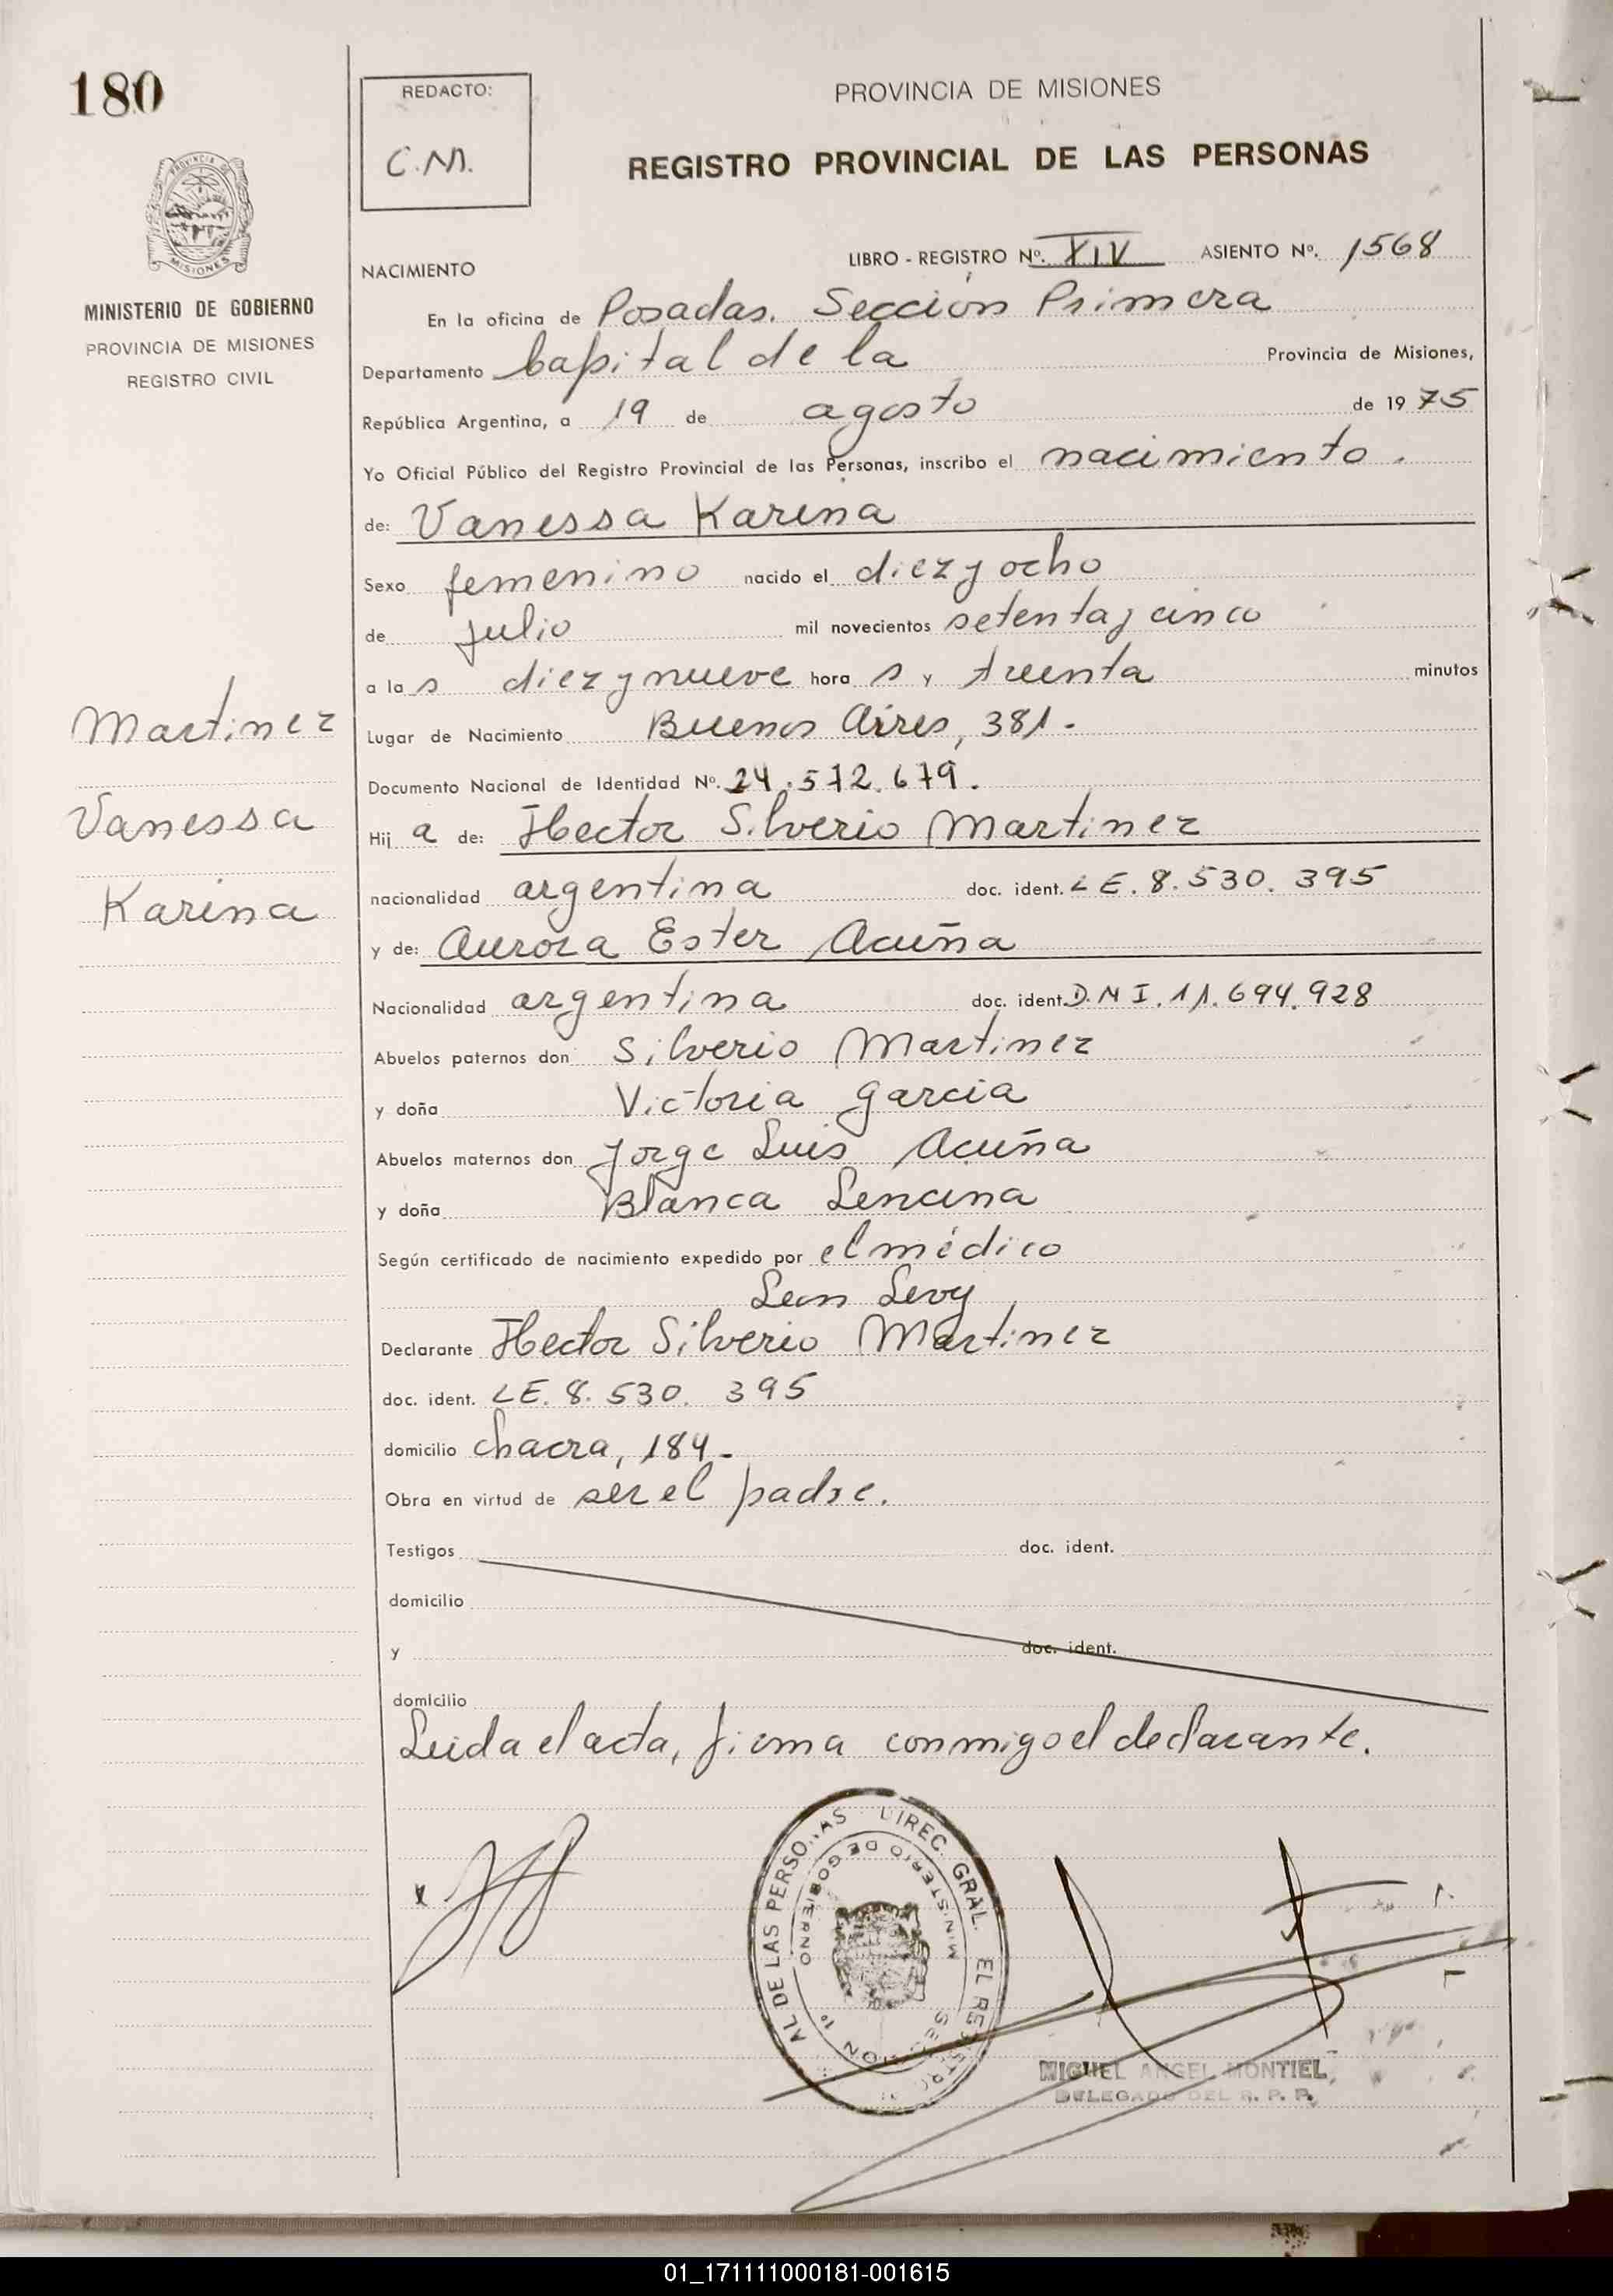 180
REDACTO:
C.M.
PROVINCIA DE MISIONES
REGISTRO PROVINCIAL DE LAS PERSONAS
PROVINCIA DE
MISIONES
MINISTERIO DE GOBIERNO
PROVINCIA DE MISIONES
REGISTRO CIVIL
LIBRO - REGISTRO Nº. XIV ASIENTO Nº. 1568
NACIMIENTO
En la oficina de Posadas. Sección Primera
Departamento Capital de la Provincia de Misiones,
República Argentina, a 19 de agosto de 1975
Yo Oficial Público del Registro Provincial de las Personas, inscribo el nacimiento.
de: Vanessa Karina
Sexo femenino nacido el diez y ocho
de julio mil novecientos setenta y cinco
a las diez y nueve horas y treinta minutos
Lugar de Nacimiento Buenos Aires, 381.-
Documento Nacional de Identidad Nº. 24.572.679.
Hija de: Hector Silverio Martinez
nacionalidad argentina doc. ident. LE. 8.530.395
y de: Aurora Ester Acuña
Nacionalidad argentina doc. ident. D.N I. 11.694.928
Abuelos paternos don Silverio Martinez
y doña Victoria Garcia
Abuelos maternos don Jorge Luis Acuña
y doña Blanca Lencina
Según certificado de nacimiento expedido por el médico
Leon Levy
Declarante Hector Silverio Martinez
doc. ident. LE. 8.530.395
domicilio chacra, 184.-
Obra en virtud de ser el padre.
Testigos doc. ident.
domicilio
y doc. ident.
domicilio
Leida el acta, firma conmigo el declarante.
Martinez
Vanessa
Karina
DIREC. GRAL. EL REGISTRO AL DE LAS PERSONAS
MINISTERIO DE GOBIERNO
SECCION 1º
MIGUEL ANGEL MONTIEL
DELEGADO DEL R. P. P.
01_171111000181-001615